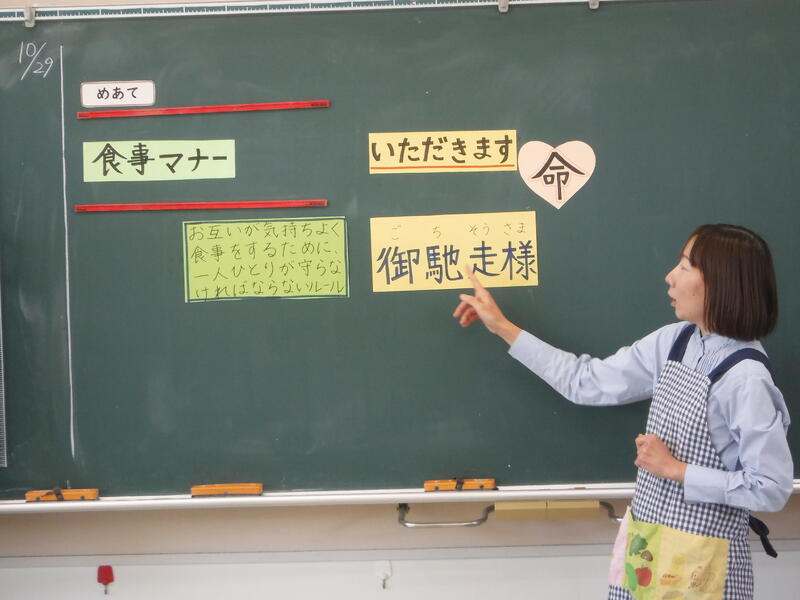 10/29
めあて
食事マナー
お互いが気持ちよく
食事をするために、
一人ひとりが守らな
ければならないルール
いただきます
命
ご ち そう さま
御馳走様